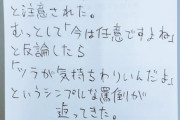 と注意された。
むっとして「今は任意ですよね」
と反論したら
「ツラが気持ちわりぃんだよ」
というシンプルな罵倒が
返ってきた。